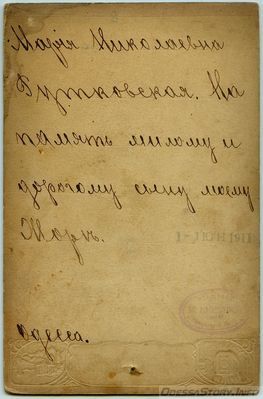 Марія Николаевна
Гутковская. На
память милому и
дорогому сыну моему
Жоржъ.
одесса.
OdessaStory.Info